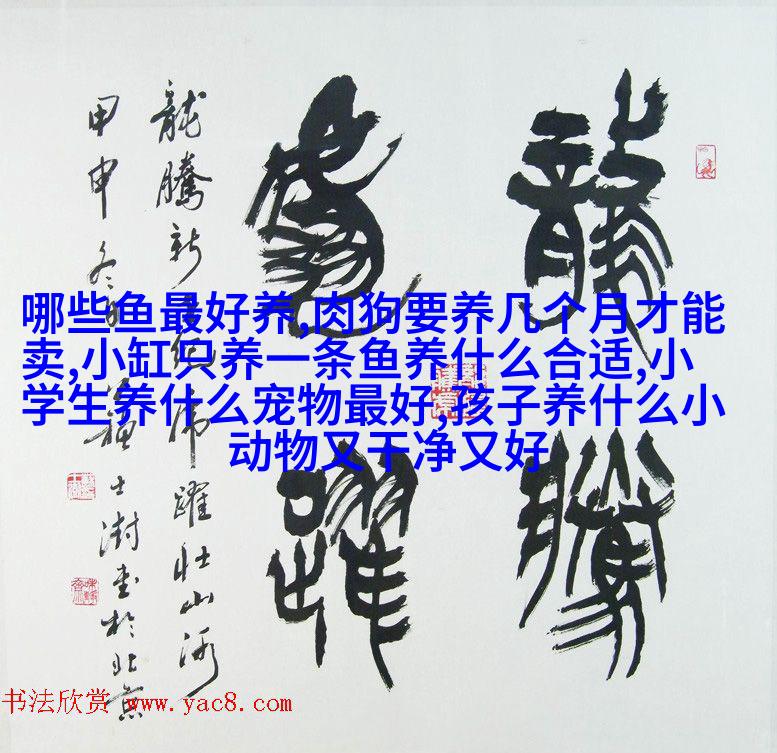 龍騰
虎躍
龍騰新紀虎躍壯山河
甲申冬月
士澍書於北京
哪些鱼最好养,肉狗要养几个月才能
卖,小缸只养一条鱼养什么合适,小
学生养什么宠物最好,孩子养什么小
动物又干净又好
书法欣赏 www.yac8.com